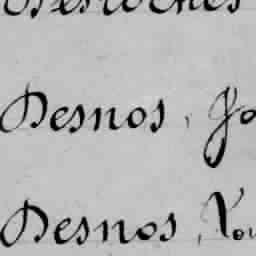 Desnos, Jo
Desnos, Lou